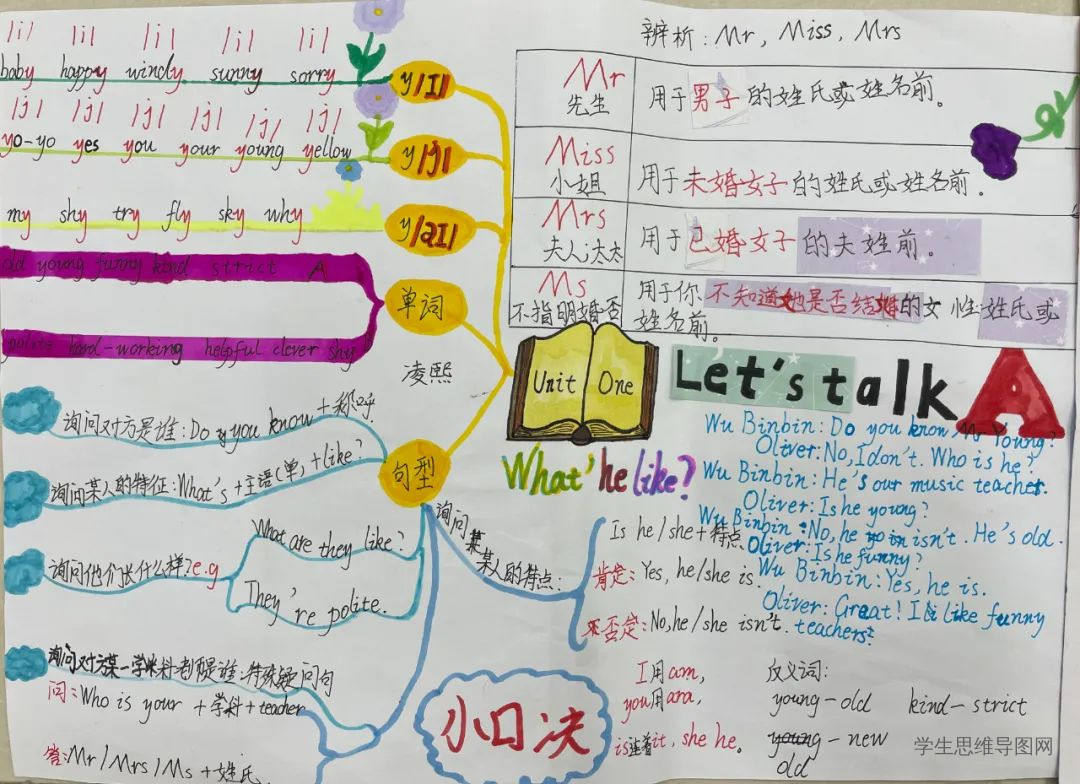 /i/ /i/ /i/ /i/ /i/
baby happy windy sunny sorry
y/I/
/j/ /j/ /j/ /j/ /j/ /j/
yo-yo yes you your young yellow
y/j/
my shy try fly sky why
y/aI/
old young funny kind strict A
单词
polite hard-working helpful clever shy
凌熙
辨析:Mr, Miss, Mrs
Mr
先生
用于男子的姓氏或姓名前。
Miss
小姐
用于未婚女子的姓氏或姓名前。
Mrs
夫人;太太
用于已婚女子的夫姓前。
Ms
不指明婚否
用于你不知道她是否结婚的女性姓氏或
姓名前。
Unit One
What' he like?
Let's talk A
Wu Binbin: Do you know Mr Young?
Oliver: No, I don't. Who is he?
Wu Binbin: He's our music teacher.
Oliver: Is he young?
Wu Binbin: No, he isn't. He's old.
Oliver: Is he funny?
Wu Binbin: Yes, he is.
Oliver: Great! I like funny
teachers.
句型
询问对方是谁:Do you know+称呼
询问某人的特征:What's+主语(单)+like?
询问他们长什么样?e.g
What are they like?
They're polite.
询问对方某一学科老师是谁:特殊疑问句
问:Who is your +学科+teacher
答:Mr/Mrs/Ms+姓氏
询问某某人的特点:
Is he/she+特点
肯定:Yes, he/she is.
否定:No, he/she isn't.
小口决
I用am,
you用ara,
is连着it, she he。
反义词:
young-old kind-strict
young-new
old
学生思维导图网